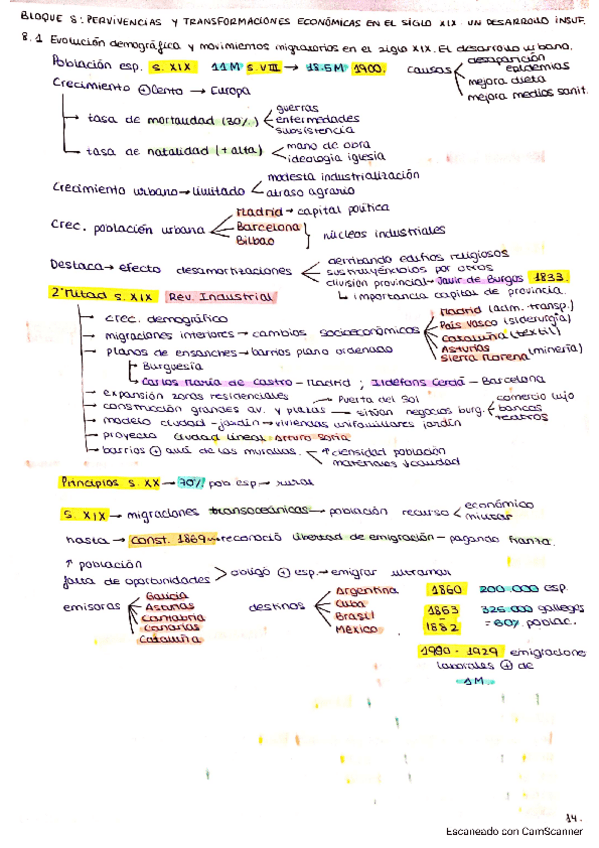 BLOQUE 8: PERVIVENCIAS Y TRANSFORMACIONES ECONÓMICAS EN EL SIGLO XIX. UN DESARROLLO INSUF.
8.1 Evolución demográfica y movimientos migratorios en el siglo XIX. El desarrollo urbano.
Población esp. s. XIX 11M s. VIII → 18.5M 1900. causas desaparición epidemias
mejora dieta
mejora medios sanit.
Crecimiento ⊕ lento → Europa
tasa de mortalidad (30%) guerras
enfermedades
subsistencia
tasa de natalidad (+ alta) mano de obra
ideología iglesia
Crecimiento urbano → limitado modesta industrialización
atraso agrario
Crec. población urbana Madrid → capital política
Barcelona
Bilbao núcleos industriales
Destaca → efecto desamortizaciones derribando edifios religiosos
sustituyéndolos por otros
división provincial → Javir de Burgos 1833.
↳ importancia capital de provincia.
2ª Mitad s. XIX Rev. Industrial
→ crec. demográfico
→ migraciones interiores → cambios socioeconómicos Madrid (adm. transp.)
País Vasco (siderurgia)
Cataluña (textil)
Asturias
Sierra Morena (minería)
→ planos de ensanches → barrios plano ordenado
Burguesía
Carlos María de Castro - Madrid ; Ildefons Cerdà - Barcelona
→ expansión zonas residenciales → Puerta del Sol
→ construcción grandes av. y plazas → sitúan negocios burg. comercio lujo
bancos
teatros
→ modelo ciudad-jardín → viviendas unifamiliares jardín
→ proyecto ciudad lineal: Arturo Soria
→ barrios ⊕ allá de las murallas. ↑ densidad población
materiales ↓ calidad
Principios s. XX → 70% pob esp → rural
s. XIX → migraciones transoceánicas → población recurso económico
militar
hasta → Const. 1869 → reconoció libertad de emigración - pagando fianza.
↑ población
falta de oportunidades > obligó ⊕ esp. → emigrar ultramar
emisoras Galicia
Asturias
Cantabria
Canarias
Cataluña
destinos Argentina
Cuba
Brasil
México
1860 200.000 esp.
1863 - 1882 325.000 gallegos = 60% poblac.
1900 - 1929 emigraciones
laborales ⊕ de
1M.
14.
Escaneado con CamScanner